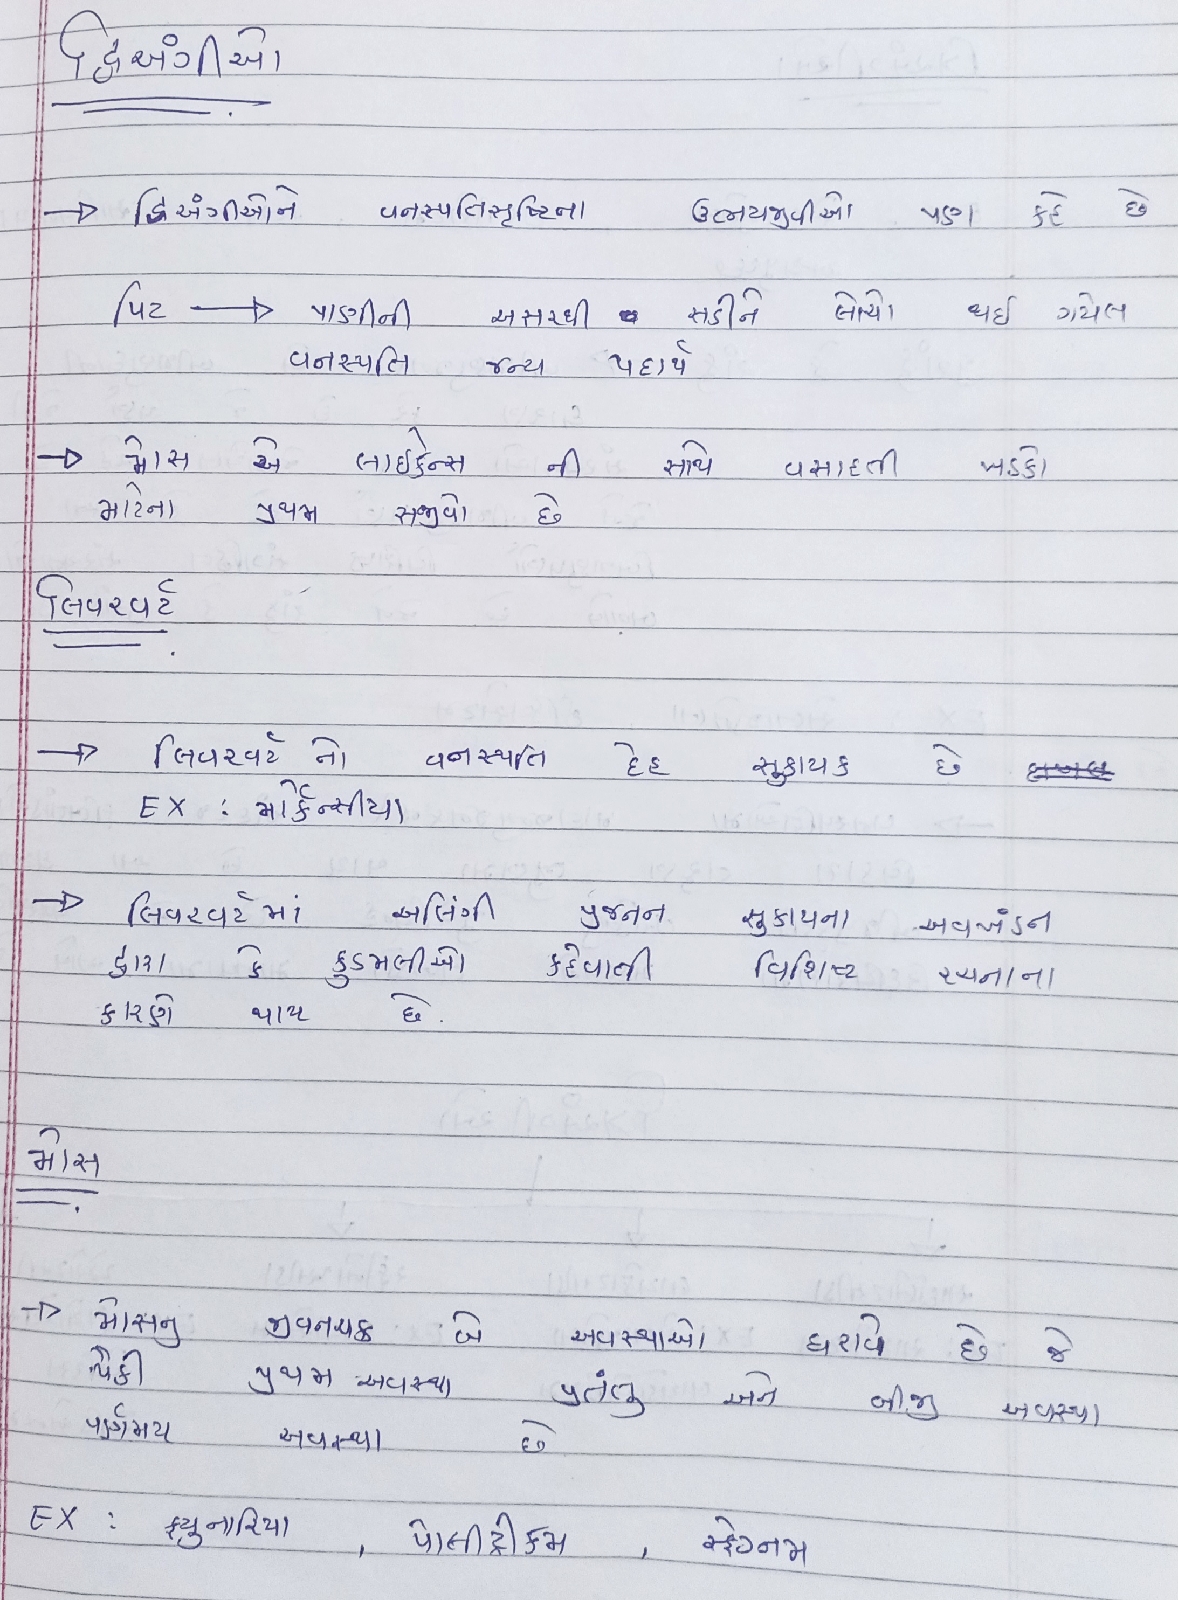 દ્વિઅંગીઓ
→ દ્વિઅંગીઓને વનસ્પતિસૃષ્ટિના ઉભયજીવીઓ પણ કહે છે
પિટ → પાણીની અસરથી સડીને લોચો થઈ ગયેલ
વનસ્પતિ જન્ય પદાર્થ
→ મોસ એ લાઈકેન્સ ની સાથે વસાહતી ખડકો
માટેના પ્રથમ સજીવો છે
લિવરવર્ટ
→ લિવરવર્ટ નો વનસ્પતિ દેહ સૂકાયક છે
EX : માર્કેન્સીયા
→ લિવરવર્ટમાં અલિંગી પ્રજનન સુકાયના અવખંડન
દ્વારા કે કુડમલીઓ કહેવાતી વિશિષ્ટ રચનાના
કારણે થાય છે.
મોસ
→ મોસનુ જીવનચક્ર બે અવસ્થાઓ ધરાવે છે જે
પૈકી પ્રથમ અવસ્થા પ્રતંતુ અને બીજી અવસ્થા
પર્ણમય અવસ્થા છે
EX : ફ્યુનારિયા , પોલીટ્રીકમ , સ્ફેગ્નમ